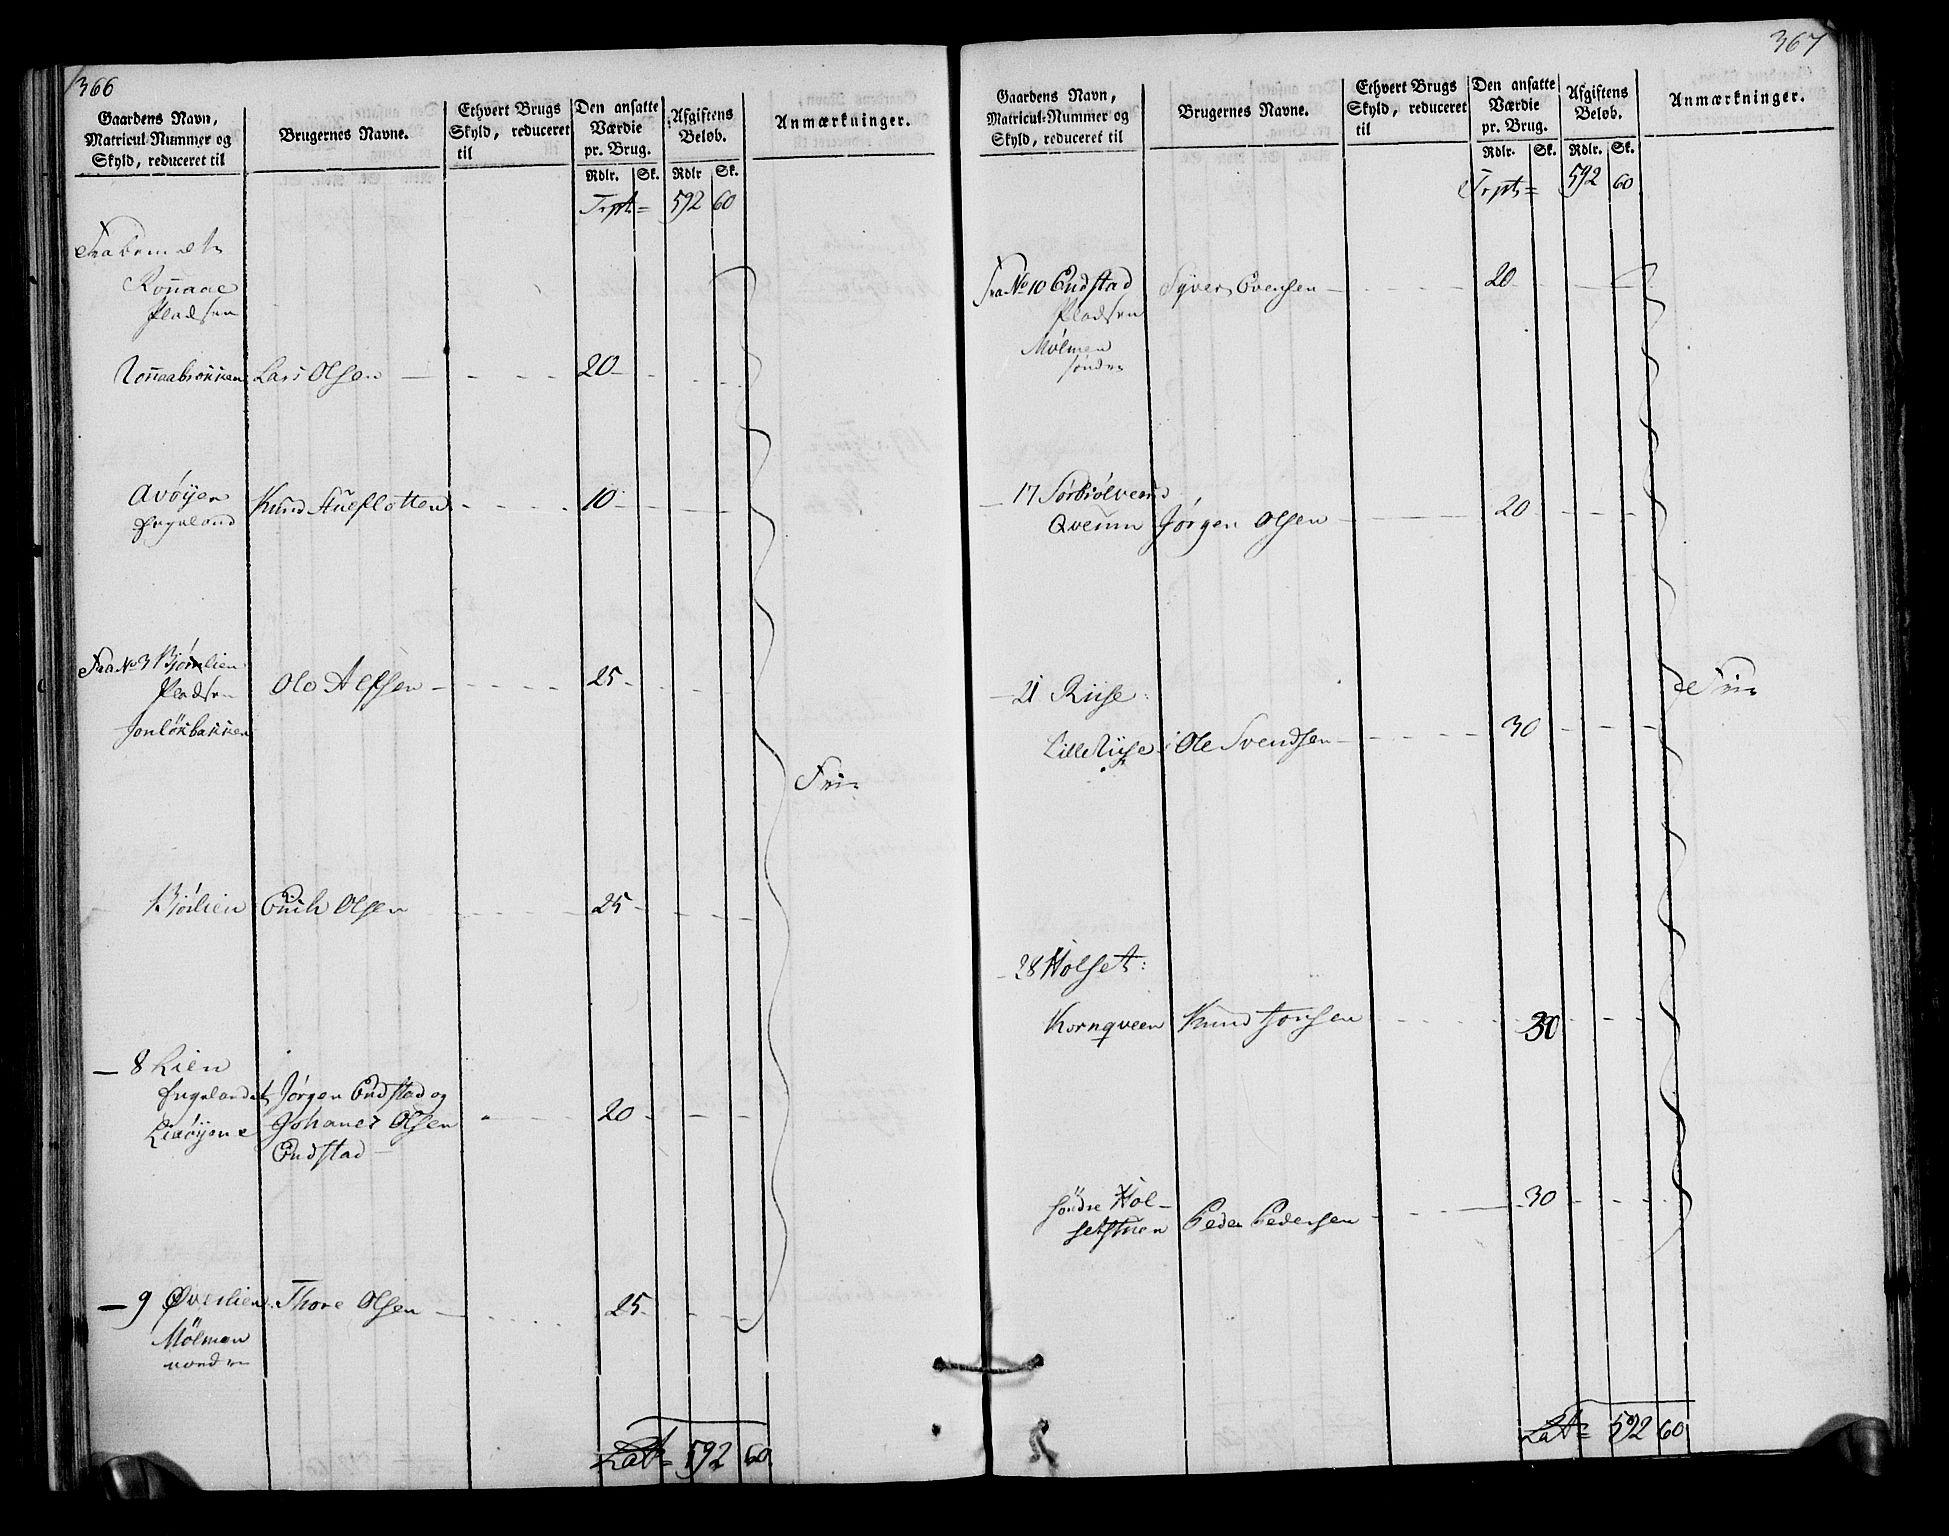 366
Gaardens Navn,
Matricul-Nummer og
Skyld, reduceret til
Brugernes Navne.
Ethvert Brugs
Skyld, reduceret
til
Den ansatte
Værdie
pr. Brug.
Afgiftens
Beløb.
Anmærkninger.
Rdlr. Sk. Rdlr Sk.
Trpt = 592 60
Pladsen
Lars Olsen 20
Avøyen
Engeland
Knud Stueflotten 10
Fra No 3 Bjørnlien
Pladsen
Ole Alfsen 25
Jonløkbakken
Fri
Bjørlien Erich Olsen 25
8 Lien
Engelandet Jørgen Endstad og
Johanes Olsen 20
Endstad
9 Øverlien Thore Olsen 25
Mölmen
nordre
Lat = 592 60
367
Gaardens Navn,
Matricul-Nummer og
Skyld, reduceret til
Brugernes Navne.
Ethvert Brugs
Skyld, reduceret
til
Den ansatte
Værdie
pr. Brug.
Afgiftens
Beløb.
Anmærkninger.
Rdlr. Sk. Rdlr. Sk.
Trpt = 592 60
Fra No 10 Endstad Syver Evensen 20
Pladsen
Mölmen
søndre
17
Jørgen Olsen 20
21 Riise
Fri
Lille Riise Ole Svendsen 30
28 Holset:
Kornqveen Knud Jonsen 30
Søndre Hol-
setstuen Peder Pedersen 30
Lat = 592 60